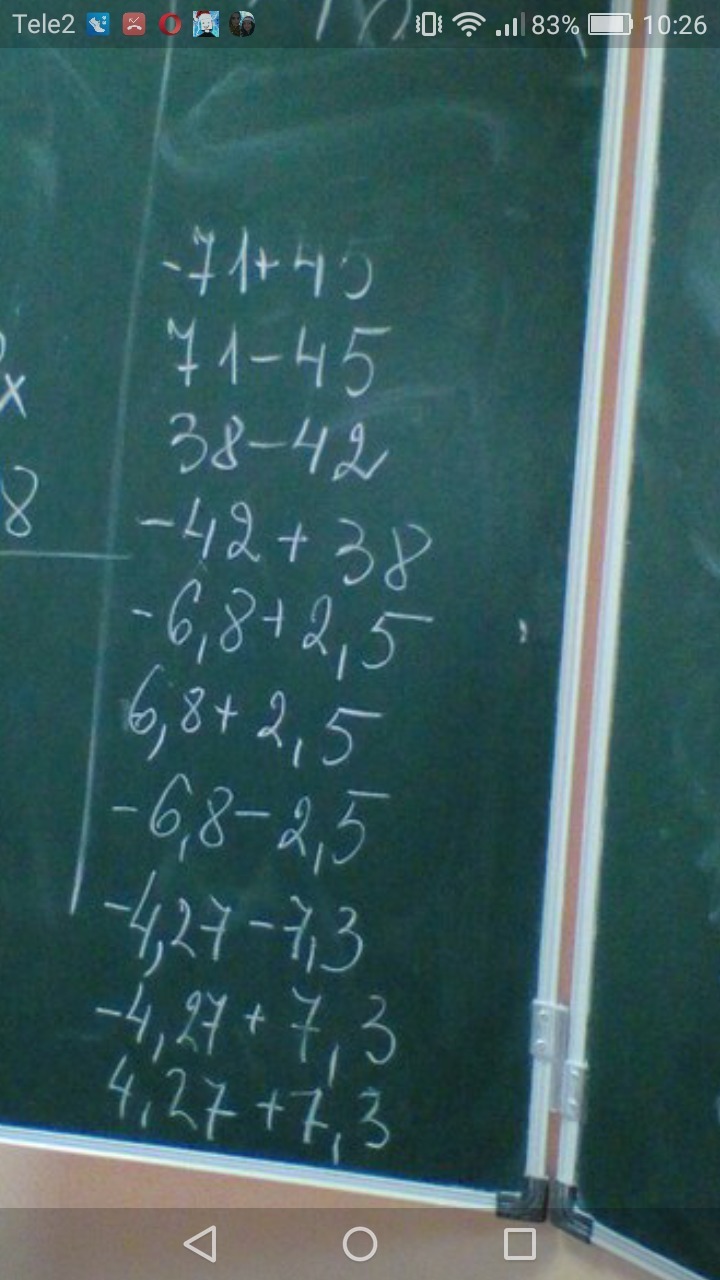 Tele2 83% 10:26
-71+45
71-45
38-42
x
8
-42+38
-6,8+2,5
6,8+2,5
-6,8-2,5
-4,27-7,3
-4,27+7,3
4,27+7,3